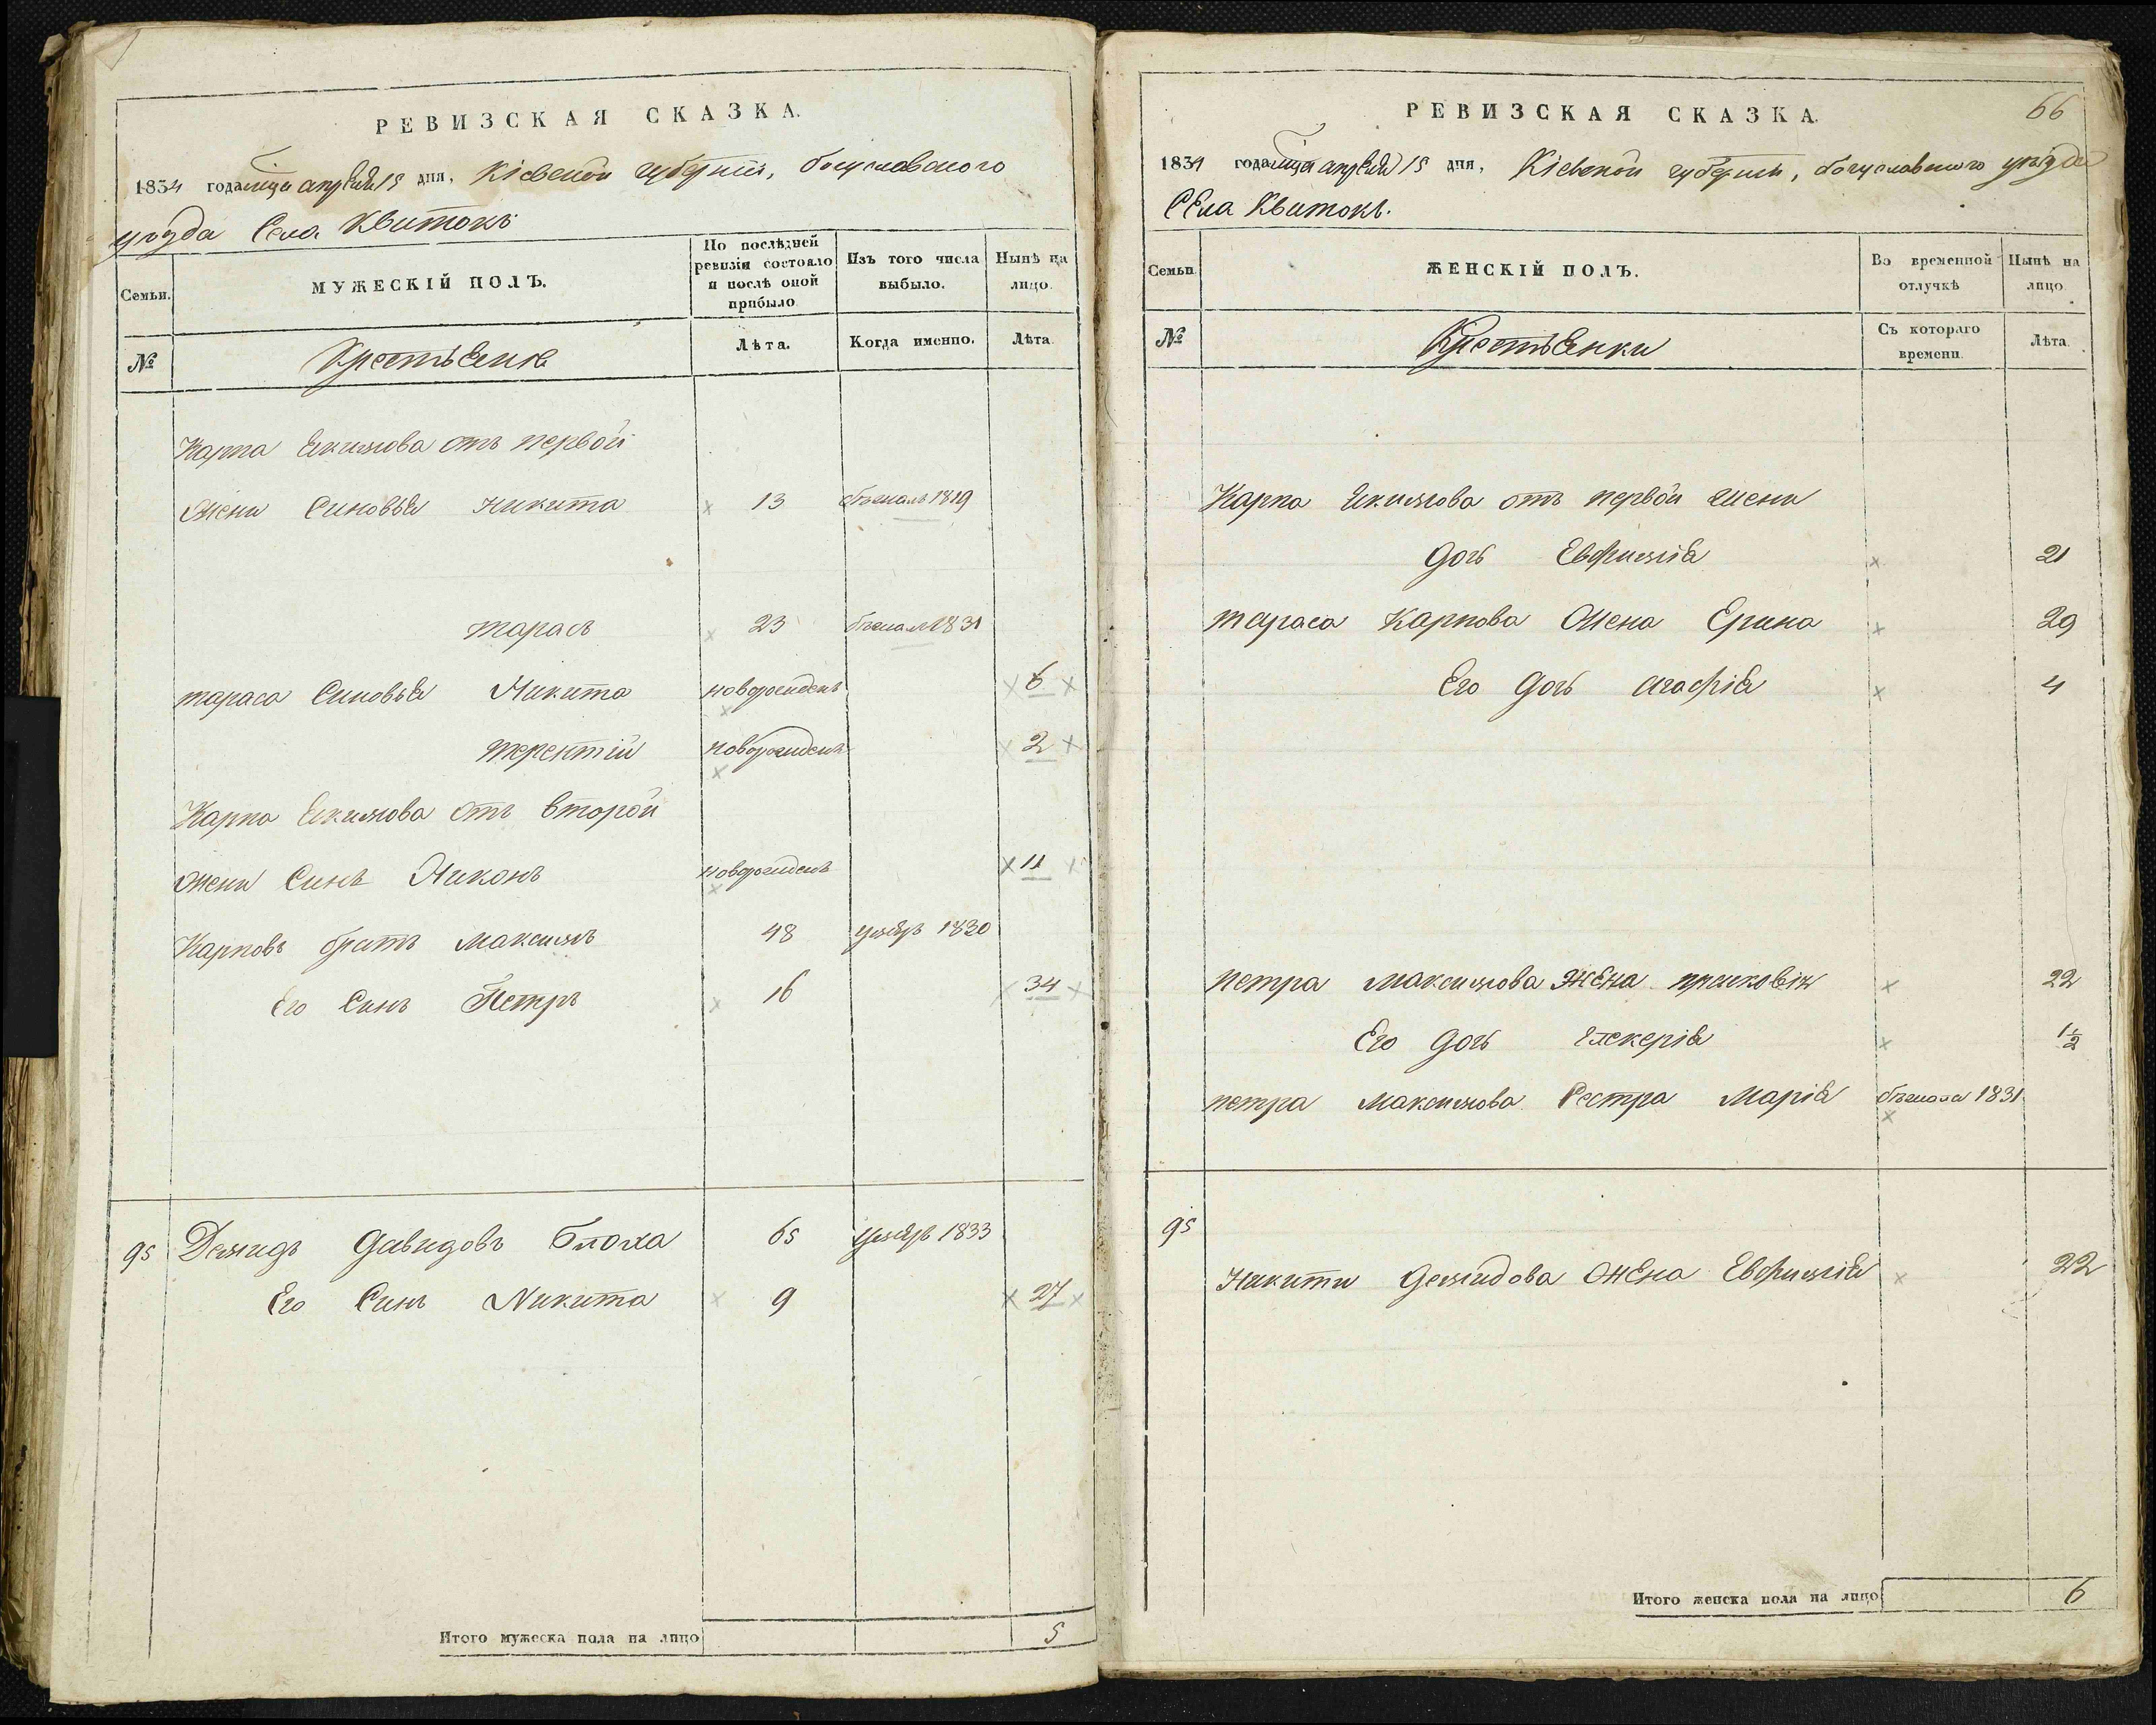 РЕВИЗСКАЯ СКАЗКА.
1834 года мца апреля 15 дня, Кіевской губерніи, богуславского
уезда Села Квитокъ
Семьи.
МУЖЕСКІЙ ПОЛЪ.
По послѣдней ревизіи состояло и послѣ оной прибыло
Изъ того числа выбыло.
Нынѣ на лицо.
№
Крестьяне
Лѣта.
Когда именно.
Лѣта
Карпа Екимова отъ первой
жени Синовья никита 13 бѣжалъ 1819
тарасъ 23 бѣжалъ 1831
тараса Синовья Никита новорожденъ 6
терентій новорожденъ 2
Карпа Екимова отъ второй
жени Синъ Никонъ новорожденъ 11
Карповъ братъ максимъ 48 умеръ 1830
Его Синъ Петръ 16 34
95 Демидъ давидовъ блоха 65 умеръ 1833
Его Синъ Никита 9 27
Итого мужеска пола на лицо 5
66
РЕВИЗСКАЯ СКАЗКА.
1834 года мца апреля 15 дня, Кіевской губерніи, богуславского уезда
Села Квитокъ.
Семьи
ЖЕНСКІЙ ПОЛЪ.
Во временной отлучкѣ
Нынѣ на лицо
№
Крестьянки
Съ котораго времени
Лѣта.
Карпа Екимова отъ первой жени
дочь Евфимія 21
тараса Карпова жена Ерина 29
Его дочь агафія 4
петра максимова жена прасковія 22
Его дочь гликерія 1½
петра максимова Сестра Марія бѣжала 1831
95
Никити демидова жена Евфимія 22
Итого женска пола на лицо 6